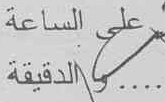 على الساعة
..... و الدقيقة